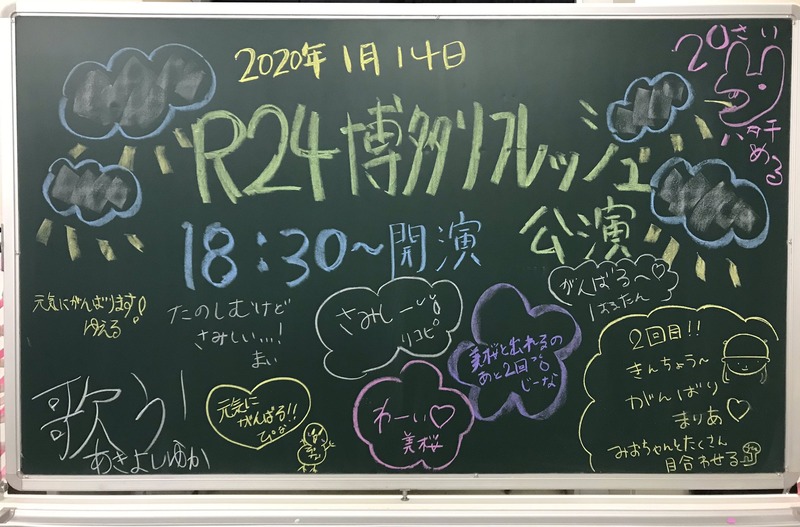 2020年1月14日
R24博多リフレッシュ
公演
18:30~開演
20さい
める
元気にがんばります!
ゆえる
たのしむけど
さみしい…!
まい
さみしー
リコピ
美桜と出れるの
あと2回
じーな
がんばる~♡
歌う!
あきよしゆか
元気に
がんばる!!
わーい♡
美桜
2回目!!
きんちょう~
がんばり
まりあ♡
みおちゃんとたくさん
目合わせる